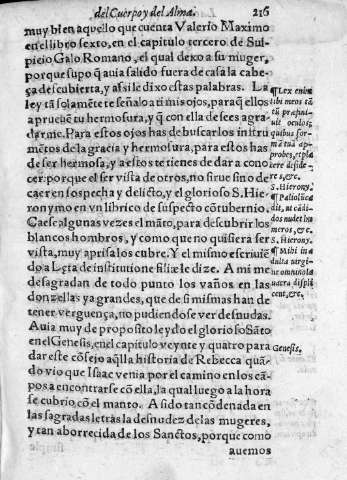 del Cuerpo y del Alma. 216
muy bien aquello que cuenta Valerio Maximo
en el libro sexto, en el capitulo tercero de Sul-
picio Galo Romano, el qual dexo a su muger,
porque supo q̃ auia salido fuera de casa la cabe-
ça descubierta, y assi le dixo estas palabras. La
ley tã solamẽte te señalo a ti mis ojos, para q̃ ellos
aprueuẽ tu hermosura, y q̃ con ella dessees agra-
darme. Para estos ojos has de buscar los instru
mẽtos de la gracia y hermosura, para estos has
de ser hermosa, y a estos te tienes de dar a cono
cer: porque el ser vista de otros, no sirue sino de
caer en sospecha y delicto, y el glorioso S. Hie-
ronymo en vn librico de suspecto cõtubernio,
Caese algunas vezes el mãto, para descubrir los
blancos hombros, y como que no quisiera ser
vista, muy aprisa los cubre. Y el mismo escriuiẽ
do a Lęta de institutione filiæ le dize. A mi me
desagradan de todo punto los vaños en las
donzellas ya grandes, que de si mismas han de
tener verguença, no pudiendose ver desnudas.
Auia muy de proposito leydo el glorioso Sãto
en el Genesis, en el capitulo veynte y quatro para
dar este cõsejo aq̃lla historia de Rebecca quã-
do vio que Isaac venia por el camino en los cã-
pos a encontrarse cõ ella, la qual luego a la hora
se cubrio cõ el manto. A sido tan cõdenada en
las sagradas letras la desnudez de las mugeres,
y tan aborrecida de los Sanctos, porque como
auemos
¶ Lex enim
tibi meos tã
tũ præfiniuit
oculos,
quibus for-
mã tuã ap-
probes, et pla
cere deside-
res, &c.
S. Hierony.
¶ Palioluca
dit, ut cãdi-
dos nudet hu
meros, &c.
S. Hierony.
¶ Mihi in a
dulta virgi-
ne omnino la
uacra displi
cent, &c.
Genesis.